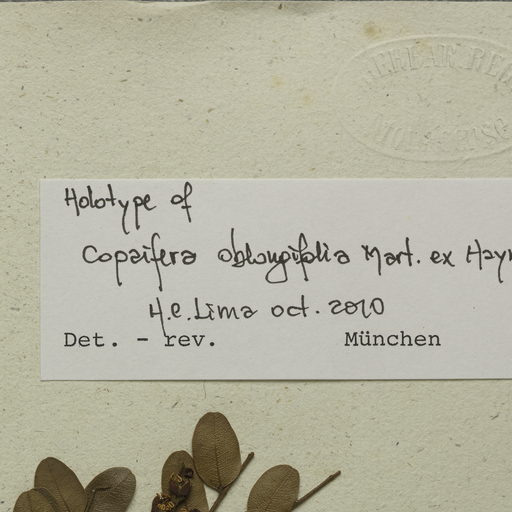 Holotype of
Copaifera oblongifolia Mart. ex Hayn
H.C. Lima oct. 2010
Det. - rev. München